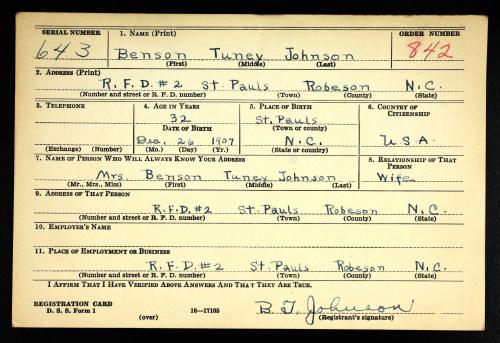 SERIAL NUMBER 1. NAME (Print) ORDER NUMBER
643 Benson Tuney Johnson 842
(First) (Middle) (Last)
2. ADDRESS (Print)
R.F.D. #2 St. Pauls Robeson N.C.
(Number and street or R. F. D. number) (Town) (County) (State)
3. TELEPHONE 4. AGE IN YEARS 5. PLACE OF BIRTH 6. COUNTRY OF CITIZENSHIP
32 St. Pauls
DATE OF BIRTH (Town or county)
Dec. 26 1907 N.C. U.S.A.
(Exchange) (Number) (Mo.) (Day) (Yr.) (State or country)
7. NAME OF PERSON WHO WILL ALWAYS KNOW YOUR ADDRESS 8. RELATIONSHIP OF THAT PERSON
Mrs. Benson Tuney Johnson Wife
(Mr., Mrs., Miss) (First) (Middle) (Last)
9. ADDRESS OF THAT PERSON
R.F.D. #2 St. Pauls Robeson N.C.
(Number and street or R. F. D. number) (Town) (County) (State)
10. EMPLOYER'S NAME
11. PLACE OF EMPLOYMENT OR BUSINESS
R.F.D. #2 St. Pauls Robeson N.C.
(Number and street or R. F. D. number) (Town) (County) (State)
I AFFIRM THAT I HAVE VERIFIED ABOVE ANSWERS AND THAT THEY ARE TRUE.
REGISTRATION CARD B. T. Johnson
D. S. S. Form 1 (over) 16—17105 (Registrant's signature)